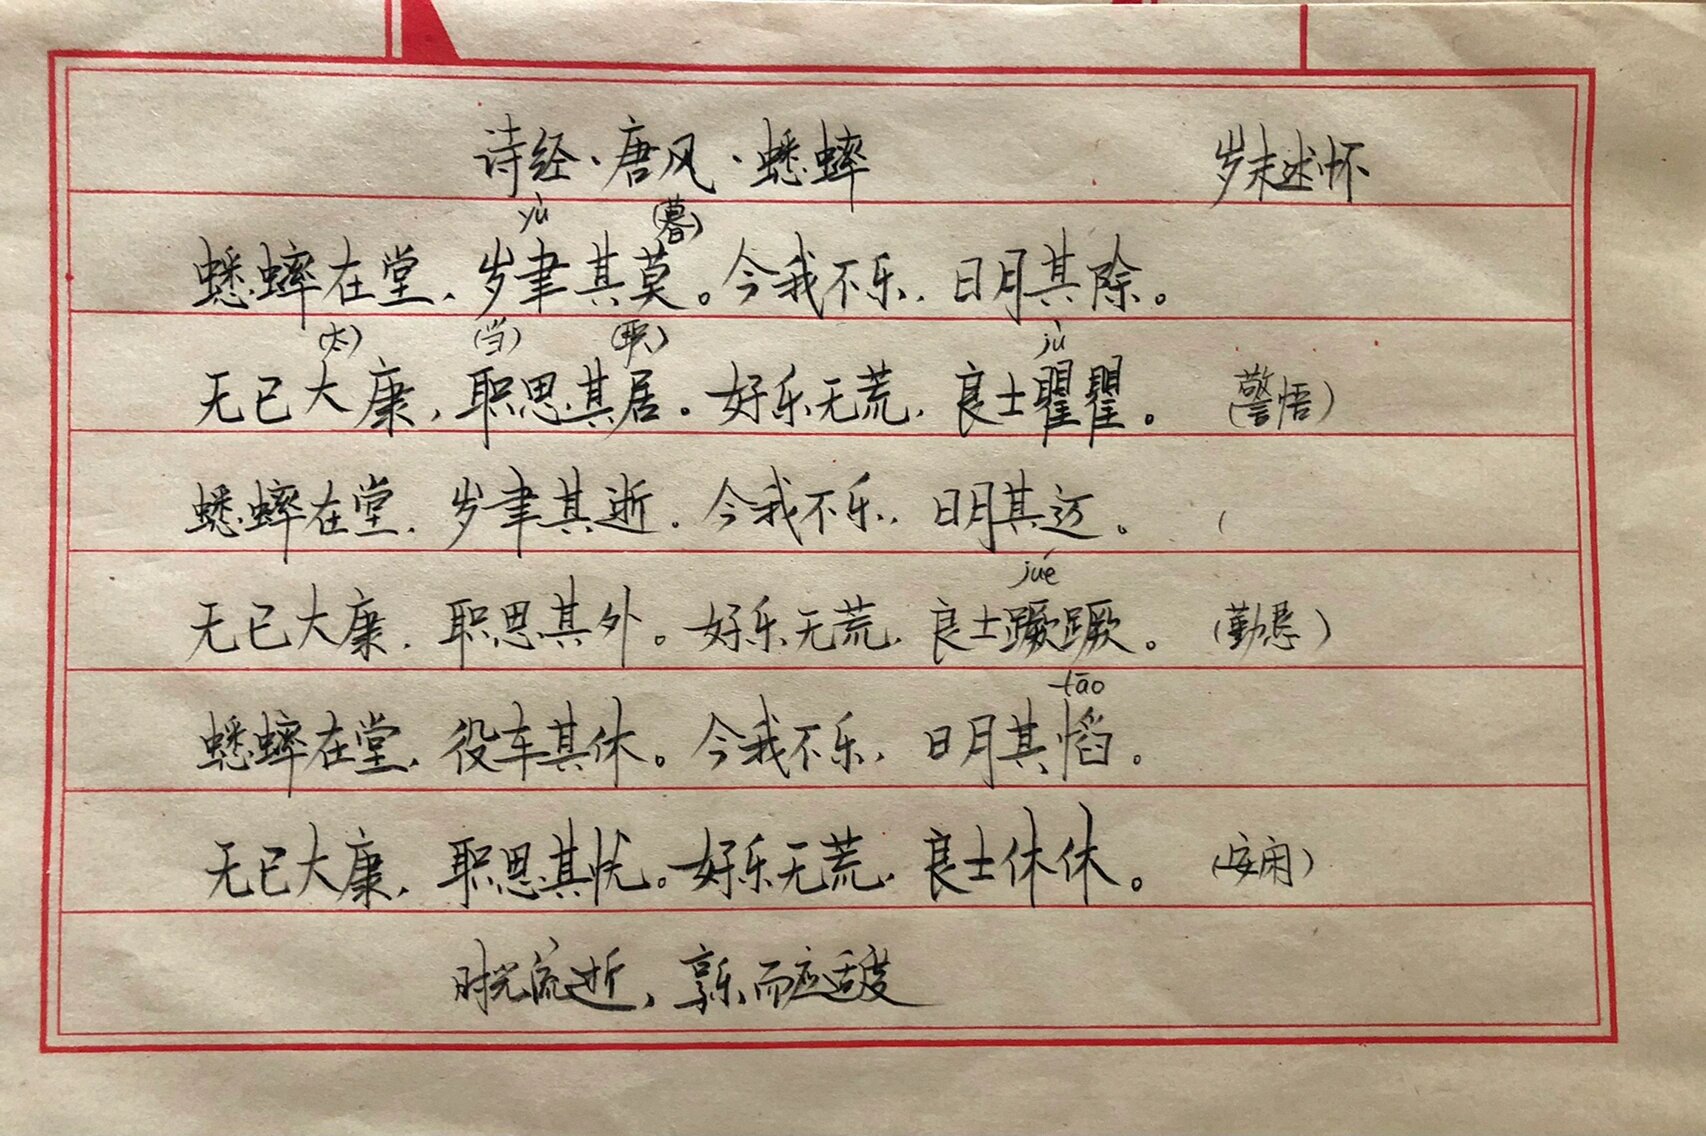 诗经·唐风·蟋蟀 岁末述怀
yù (暮)
蟋蟀在堂，岁聿其莫。今我不乐，日月其除。
(太) (当) (职) jù
无已大康，职思其居。好乐无荒，良士瞿瞿。(警悟)
蟋蟀在堂，岁聿其逝。今我不乐，日月其迈。(
jué
无已大康，职思其外。好乐无荒，良士蹶蹶。(勤恳)
tāo
蟋蟀在堂，役车其休。今我不乐，日月其慆。
无已大康，职思其忧。好乐无荒，良士休休。(安闲)
时光流逝，享乐而应适度